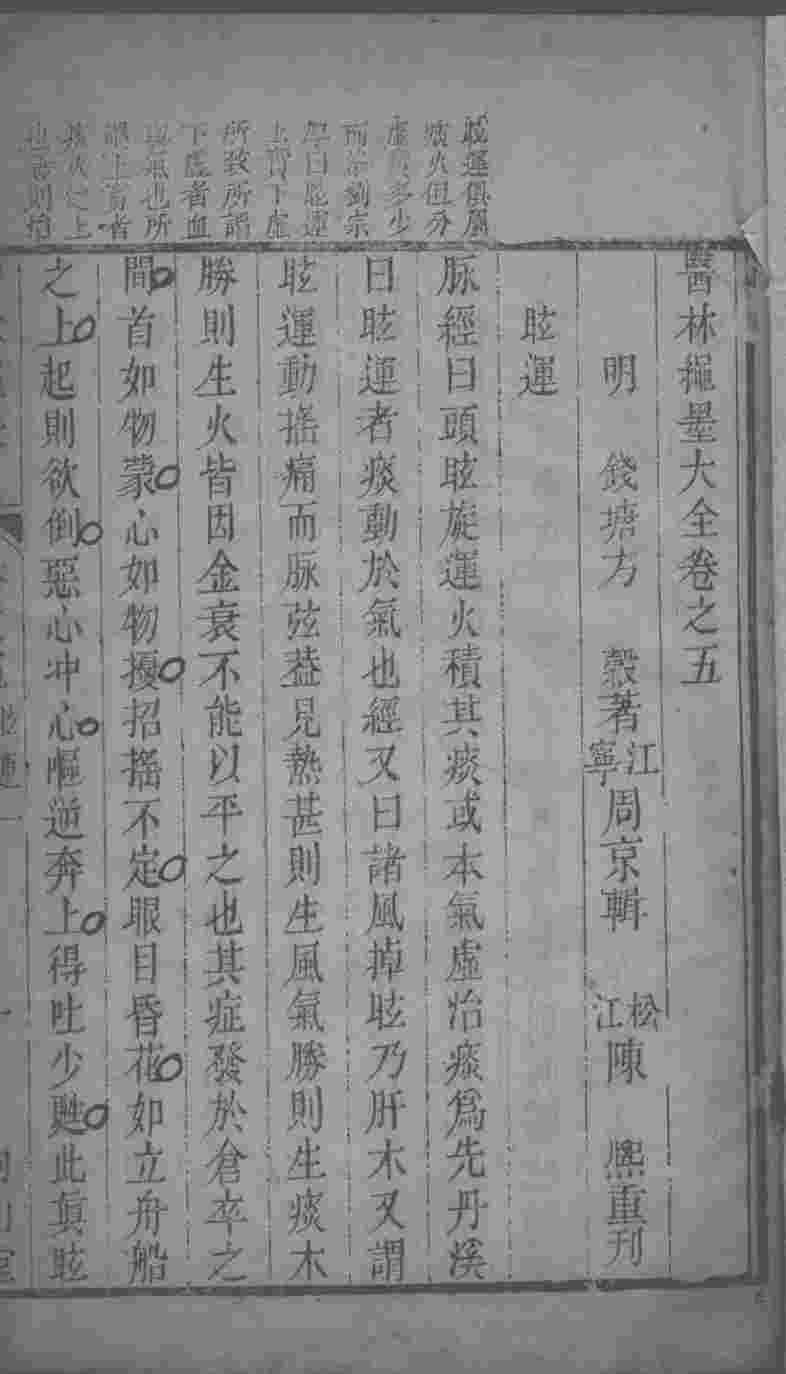 醫林繩墨大全卷之五
明 錢塘方 穀著 江寧周京輯 松江陳 熈重刊
眩運
脉經曰頭眩旋運火積其痰或本氣虛治痰爲先丹溪
曰眩運者痰動於氣也經又曰諸風掉眩乃肝木又謂
眩運動搖痛而脉弦葢見熱甚則生風氣勝則生痰木
勝則生火皆因金衰不能以平之也其症發於倉卒之
間首如物蒙心如物擾招搖不定眼目昏花如立舟船
之上起則欲倒惡心冲心嘔逆奔上得吐少甦此眞眩
眩運俱屬
痰火但分
虛實多少
而治劉宗
厚曰眩運
上實下虛
所致所謂
下虛者血
與氣也所
謂上實者
痰火之上
也急則治